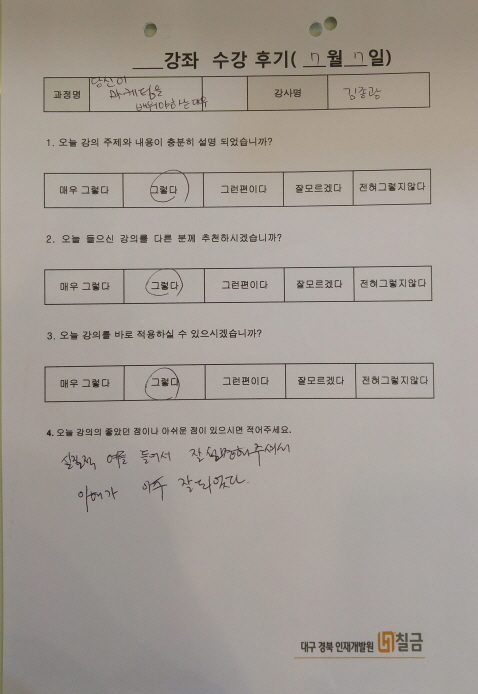 ____강좌 수강 후기( 7월 7일)
과정명 당신이
마케팅을
배워야하는 이유
강사명 김종광
1. 오늘 강의 주제와 내용이 충분히 설명 되었습니까?
매우 그렇다 그렇다 그런편이다 잘모르겠다 전혀그렇지않다
2. 오늘 들으신 강의를 다른 분께 추천하시겠습니까?
매우 그렇다 그렇다 그런편이다 잘모르겠다 전혀그렇지않다
3. 오늘 강의를 바로 적용하실 수 있으시겠습니까?
매우 그렇다 그렇다 그런편이다 잘모르겠다 전혀그렇지않다
4. 오늘 강의의 좋았던 점이나 아쉬운 점이 있으시면 적어주세요.
실질적 예를 들어서 잘 설명해주셔서
이해가 아주 잘되었다.
대구 경북 인재개발원 칠금